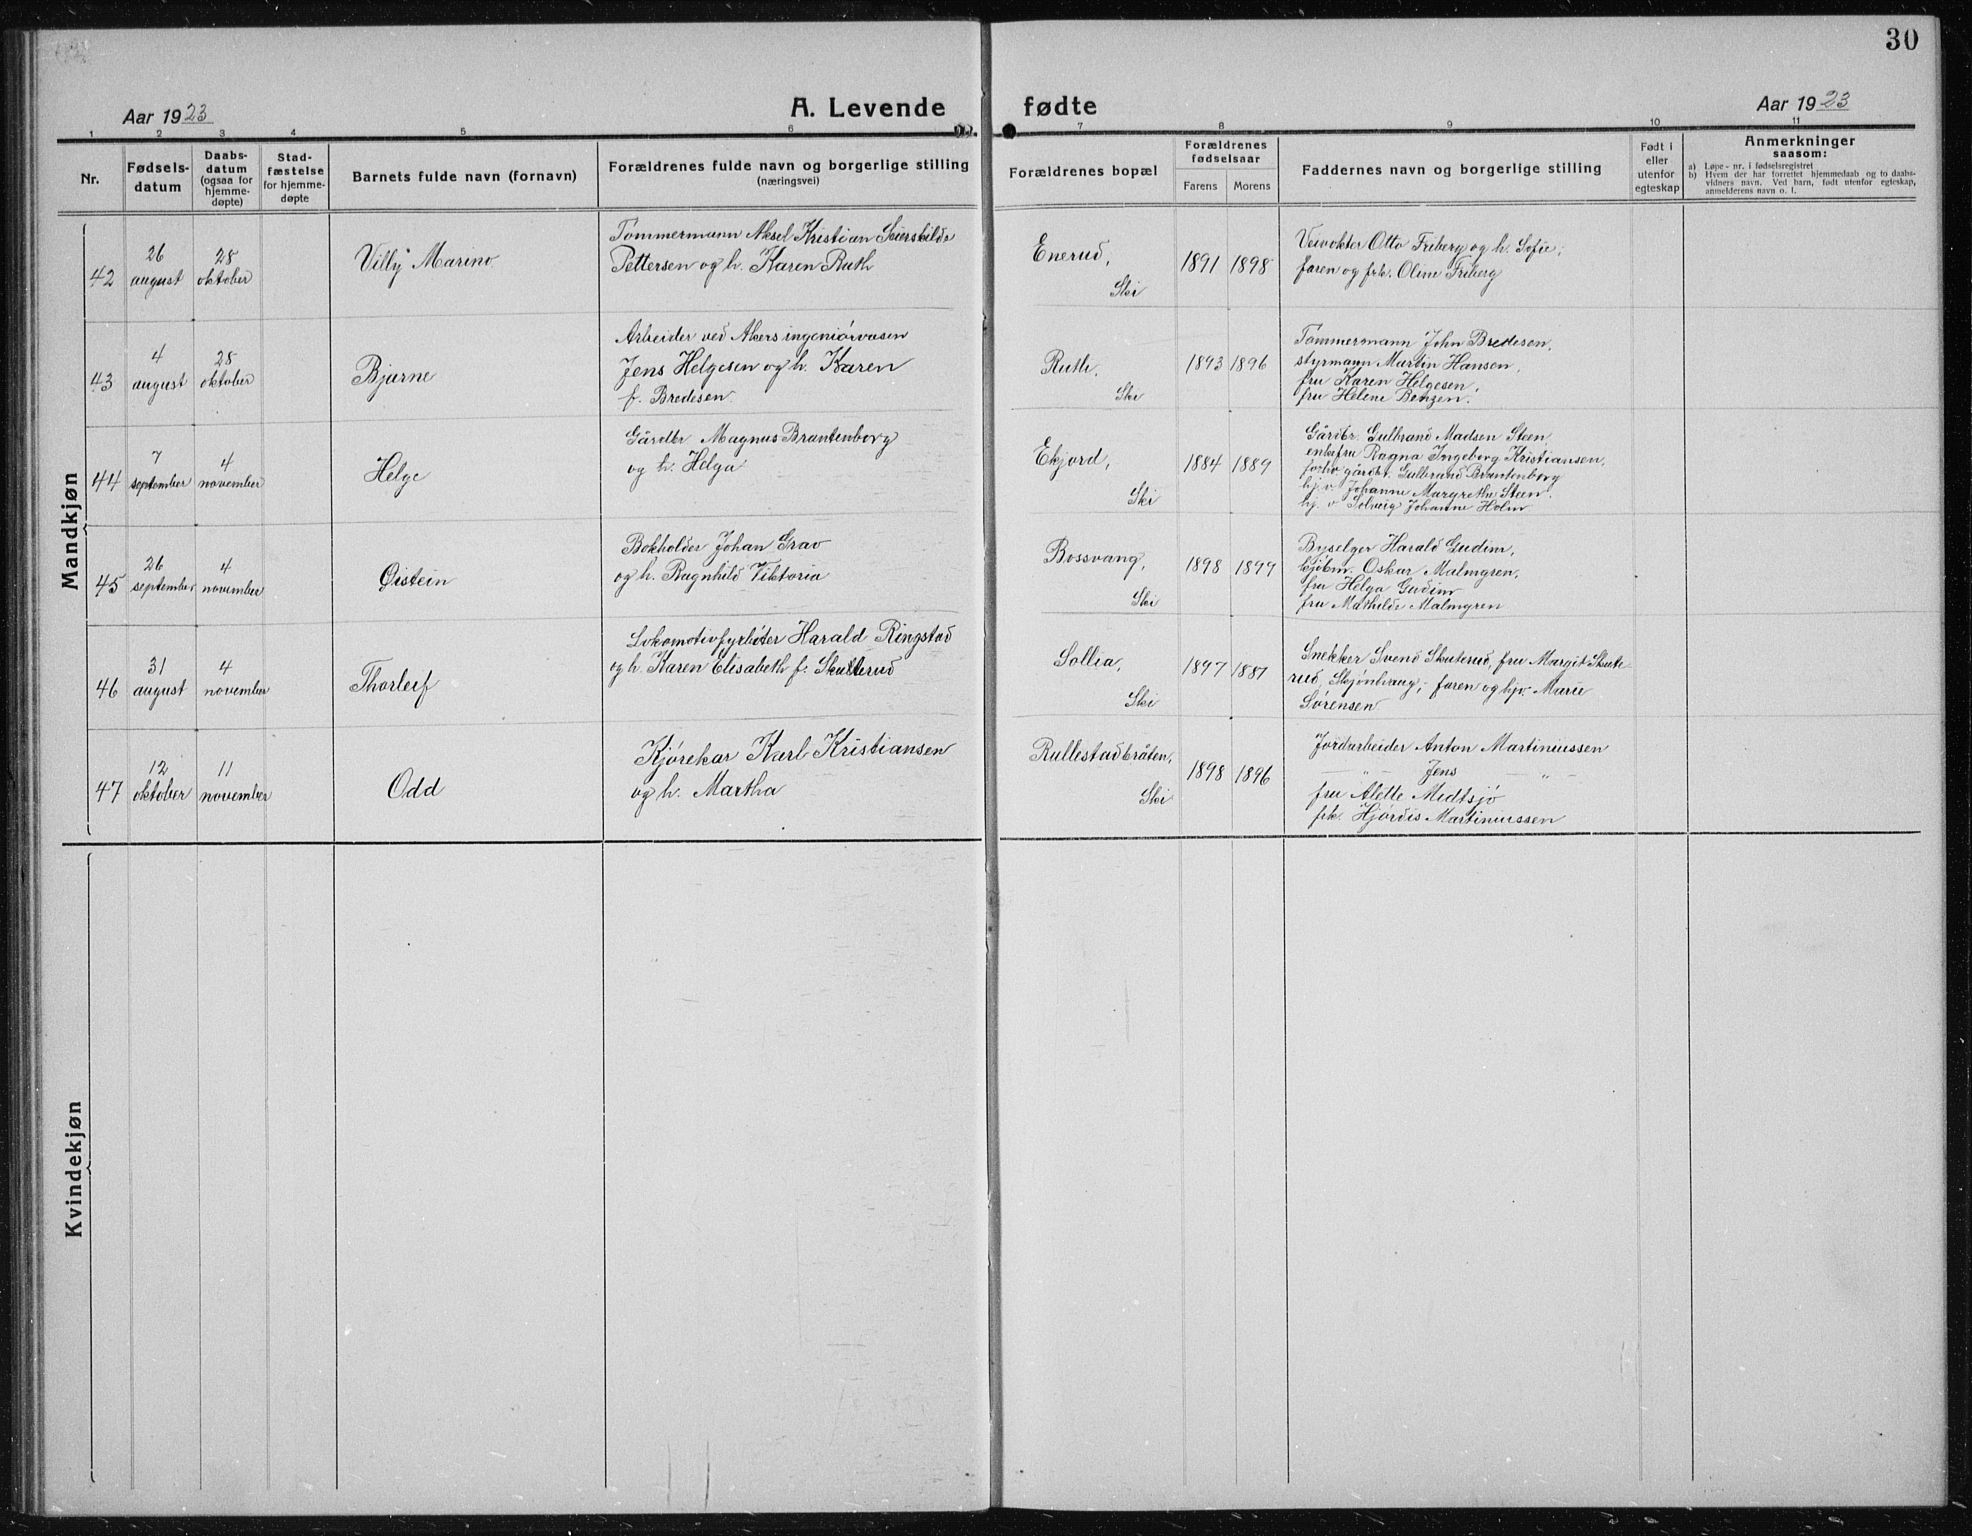 30
Aar 1923
A. Levende fødte
Aar 1923
1 2 3 4 5 6 7 8 9 10 11
Nr.
Fødsels-
datum
Daabs-
datum
(ogsaa for
hjemme-
døpte)
Stad-
fæstelse
for hjemme-
døpte
Barnets fulde navn (fornavn)
Forældrenes fulde navn og borgerlige stilling
(næringsvei)
Forældrenes bopæl
Forældrenes
fødselsaar
Farens Morens
Faddernes navn og borgerlige stilling
Født i
eller
utenfor
egteskap
Anmerkninger
saasom:
a) Løpe-nr. i fødselsregistret
b) Hvem der har forrettet hjemmedaab og to daabs-
vidners navn. Ved barn, født utenfor egteskap,
anmelderens navn o. l.
Mandkjøn
42
26
august
28
oktober
Villy Marino
Tømmermann Aksel Kristian Seierskilde
Pettersen og h. Karen Ruth
Enerud,
Ski
1891 1898
Veivokter Otto Friberg og h. Sofie;
faren og frk. Oline Friberg
43
4
august
28
oktober
Bjarne
Arbeider ved Akers ingeniørvæsen
Jens Helgesen og h. Karen
f. Bredesen.
Ruth,
Ski
1893 1896
Tømmermann John Bredesen,
styrmann Martin Hansen,
fru Karen Helgesen,
fru Helene Benzen.
44
7
september
4
november
Helge
Gårdbr Magnus Brantenborg
og h. Helga
Ekjord,
Ski
1884 1889
Gårdbr. Gulbrand Madsen Steen
enkefru Ragna Ingeborg Kristiansen,
forhv gårdbr. Gulbrand Brantenborg
hj. v. Johanne Margrethe Steen.
hj. v Solveig Johanne Holm
45
26
september
4
november
Øistein
Bokholder Johan Grav
og h. Ragnhild Viktoria
Bossvang,
Ski
1898 1899
Byselger Harald Gudim,
kjøbm. Oskar Malmgren,
fru Helga Gudim
fru Mathilde Malmgren
46
31
august
4
november
Thorleif
Lokomotivfyrbøter Harald Ringstad
og h. Karen Elisabeth f. Skuterud
Sollia,
Ski
1897 1887
Snekker Svend Skuterud, fru Margit Skute
rud, Skjønhaug; faren og hjv. Marie
Sørensen
47
12
oktober
11
november
Odd
Kjørekar Karl Kristiansen
og h. Martha
Rullestadbråten,
Ski
1898 1896
Jordarbeider Anton Martiniussen
— " — Jens — " —
fru Alette Midtsjø
frk. Hjørdis Martiniussen
Kvindekjøn